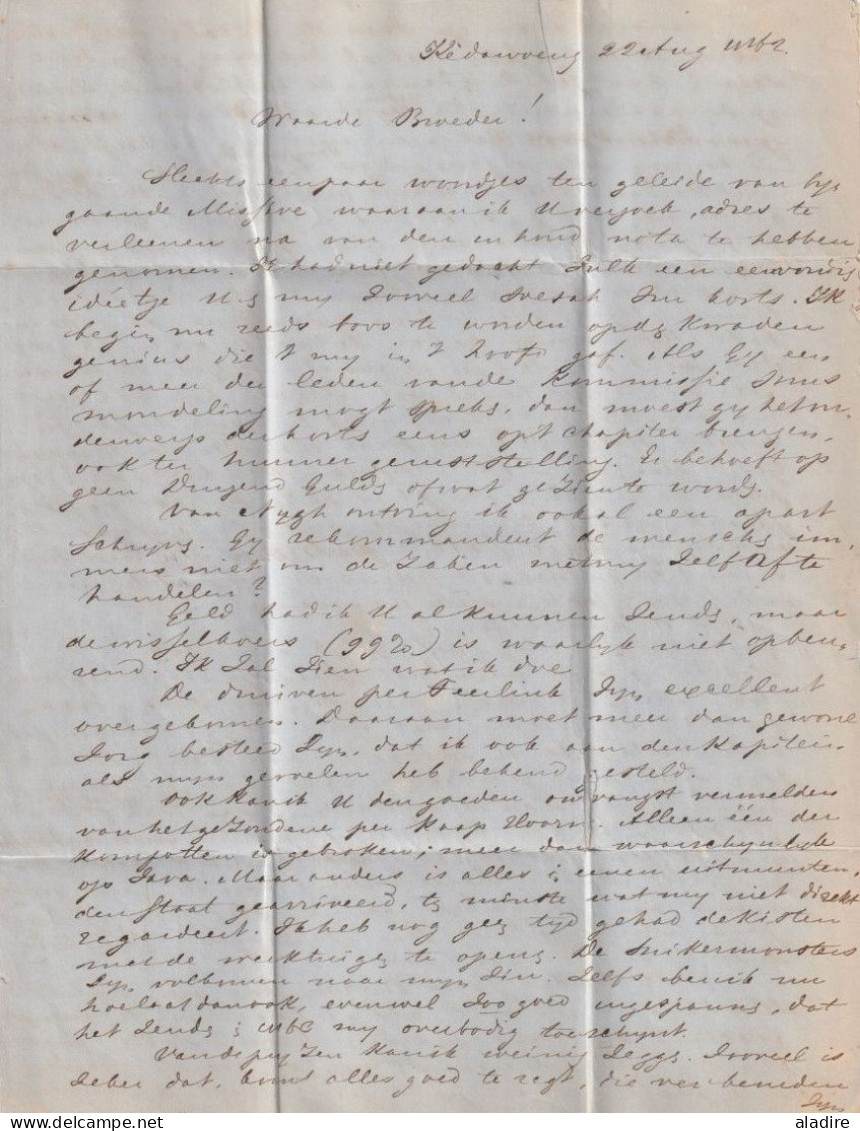 Kédawoeng 22 Aug 1862.
Waarde Broeder!
Slechts een paar woordjes ten geleide van by
gaande Missive waaraan ik U verzoek, adres te
verleenen na van den inhoud nota te hebben
genomen. Ik had niet gedacht zulk een eenvoudig
ideetje U & my zooveel soesah zou kosts. Ik
begin nu reeds boos te worden op dn Kwaden
genius die 't my in 't hoofd gaf. Als Gy een
of meer der leden van de Kommissie soms
mondeling mogt spreks, dan moest gy het on
derwerp als horts eens op 't chapiter brengen,
ook ter hunner geruststelling. Er behoeft op
geen Duizend Gulds of wat gezien te words.
Van Nygh ontving ik ook al een apart
schryvs. Gy rekommandeert de menschs im
mers niet om de zaken met my zelf af te
handelen?
Geld had ik U al kunnen zends, maar
de wisselkoers (99 %) is waarlyk niet opbeu
rend. Ik zal zien wat ik doe
De druiven per Teerlink zyn excellent
overgekomen. Daaraan moet meer dan gewone
zorg besteed zyn, dat ik ook aan den Kapitein
als myn gevoelen heb bekend gesteld.
Ook kan ik U den goeden ontvangst vermelden
van het gezondene per Kaap Hoorn. Alleen één der
Kompotten is gebroken; meer dan waarschynlyk
op Java. Maar anders is alles in eenen uitmunten
den staat gearriveerd, tn minste wat my niet direkt
regardeert. Ik heb nog geen tyd gehad de Kisten
met de werktuign te opens. De Suikermonsters
zyn volkomen naar myn zin. Zelfs ben ik nu
hoe laat dan ook, evenwel zoo goed ingespanns, dat
het zends in my overbodig toeschynt.
Van de pryzen kan ik weinig zeggs. Zooveel is
zeker dat, komt alles goed te regt, die ver beneden
zyn